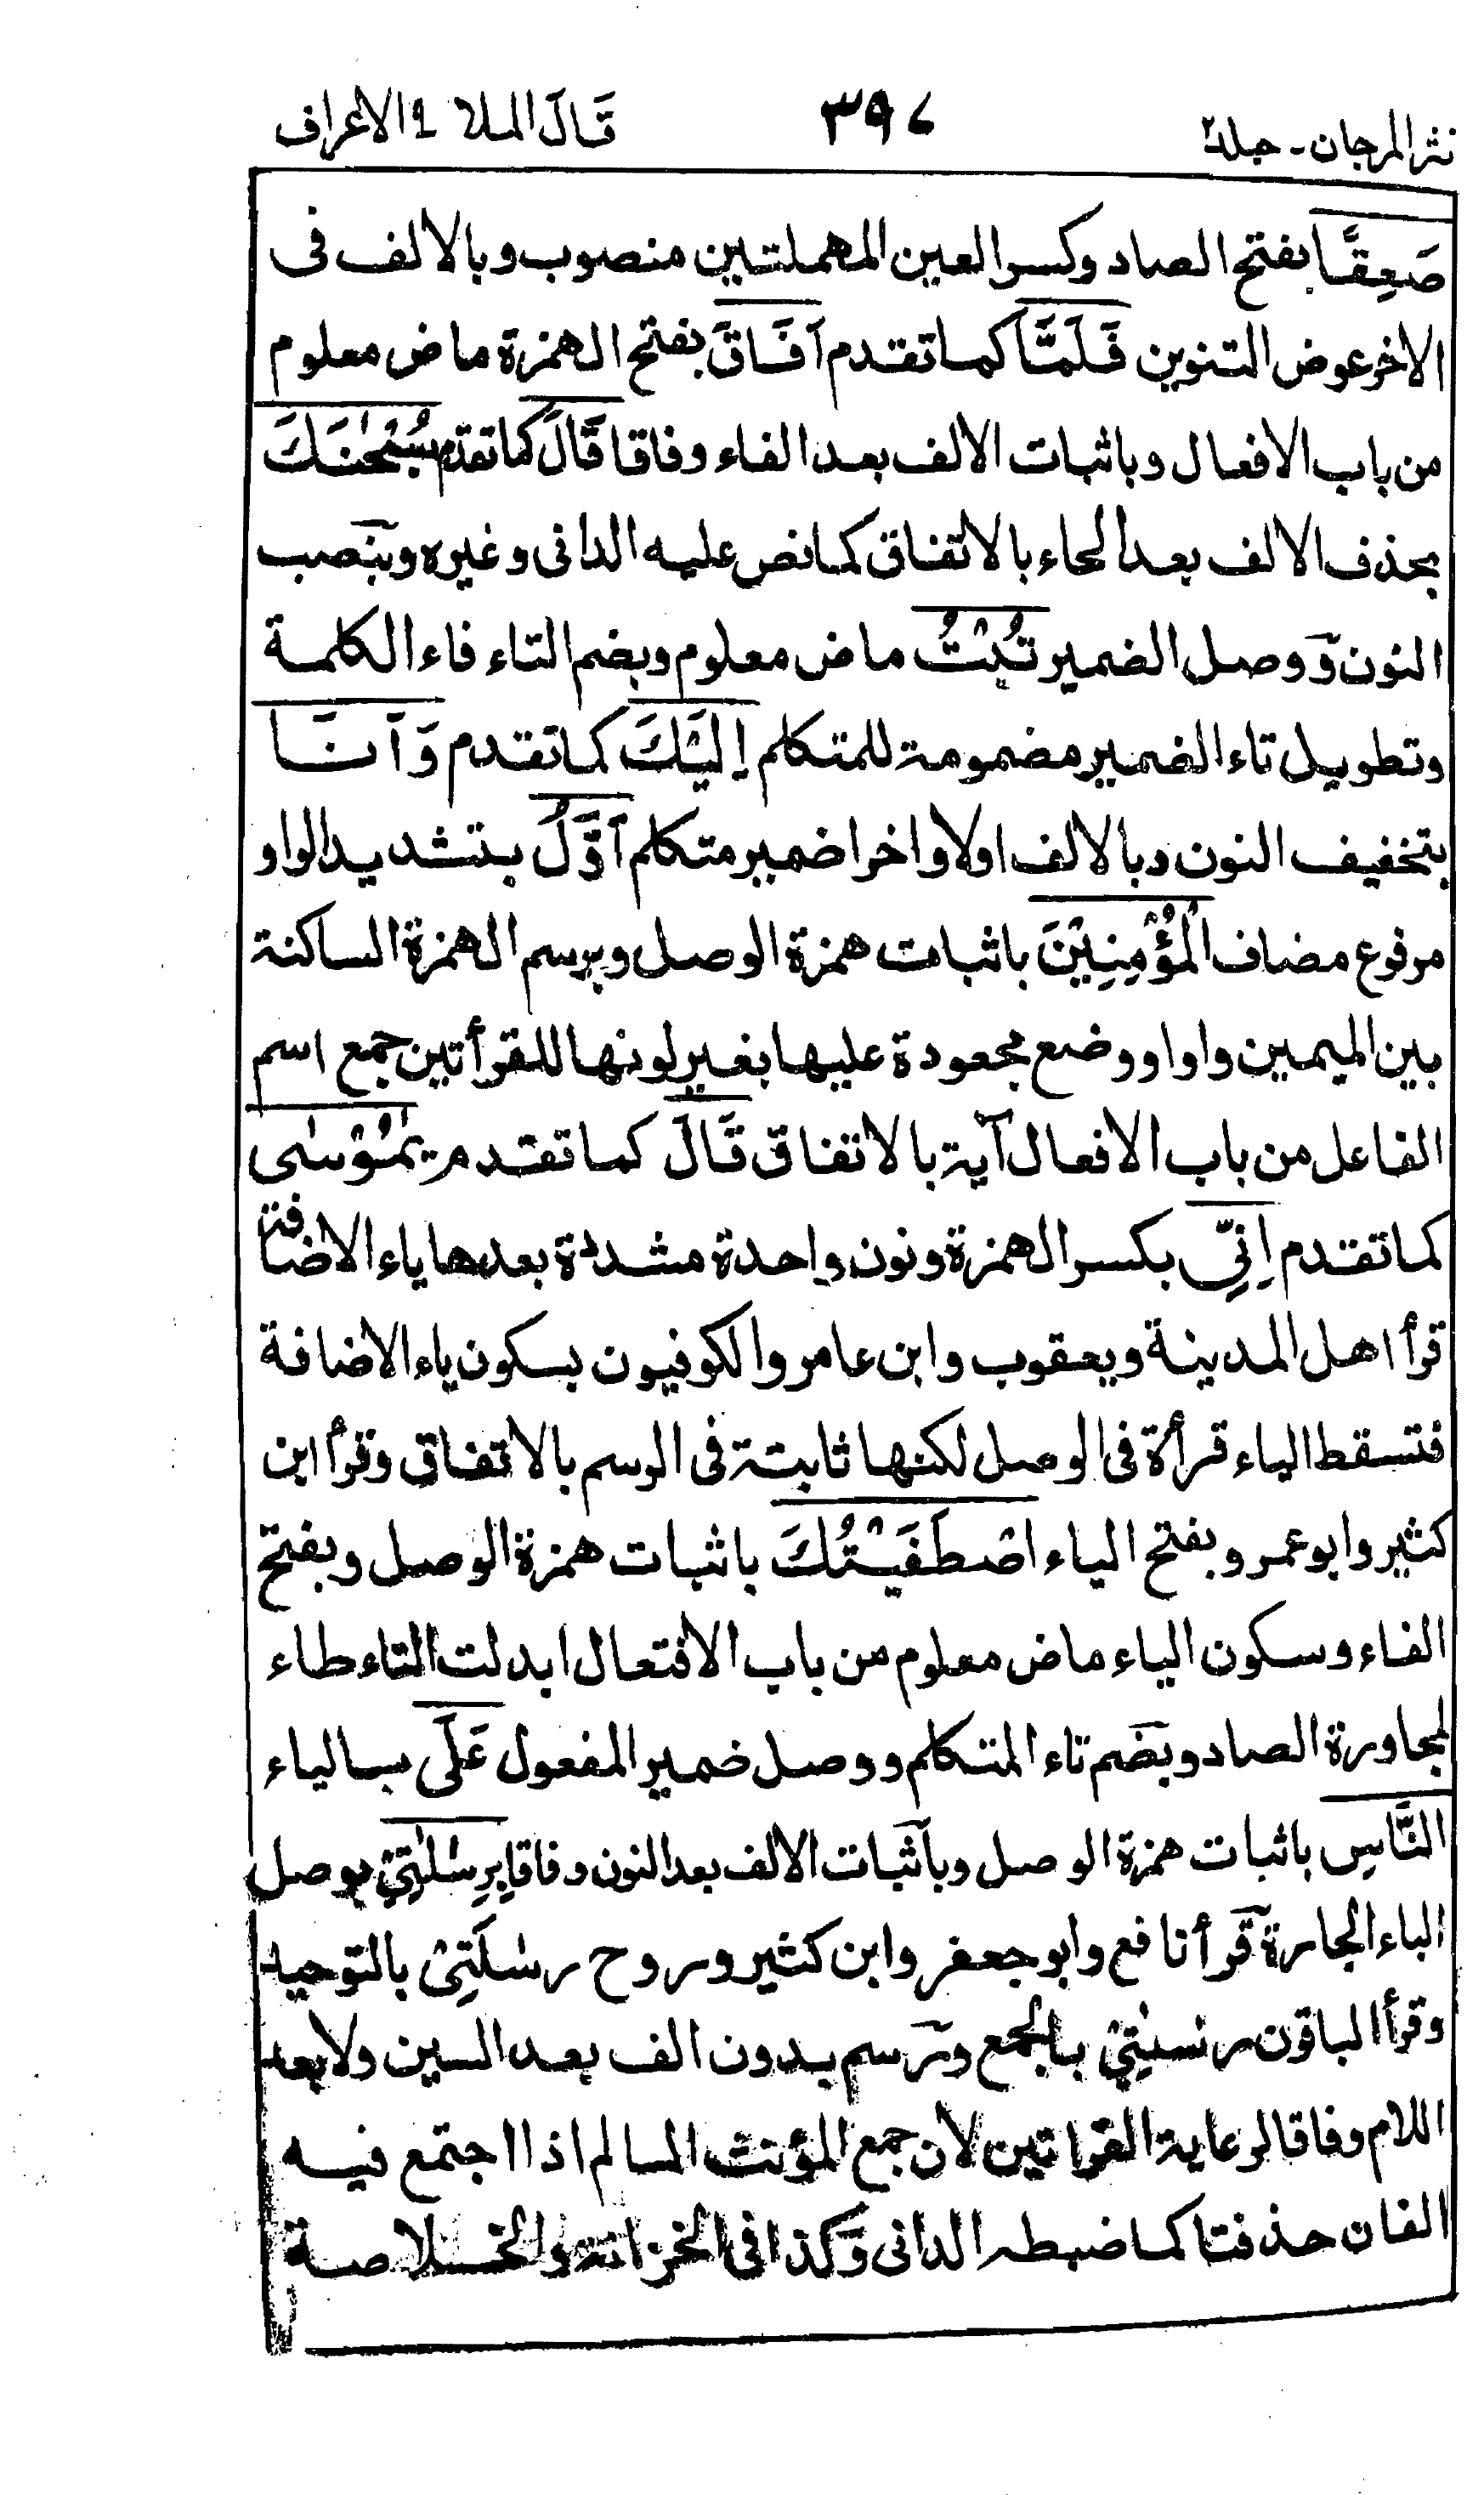 نثر المرجان - جلد٢ ٣٩٧ قَالَ الملا ٩ الاعراف
صَعِقًا بفتح الصاد وكسر العين المهملتين منصوب وبالالف فى
الاخر عوض التنوين فَلَمَّا كما تقدم اَفَاقَ بفتح الهمزة ماض معلوم
من باب الافعال وباثبات الالف بعد الفاء وفاقا قَالَ كما تقدم سُبْحٰنَكَ
بحذف الالف بعد الحاء بالاتفاق كما نص عليه الدانى وغيره وبنصب
النون ووصل الضمير تُبْتُ ماض معلوم وبضم التاء فاء الكلمة
وتطويل تاء الضمير مضمومة للمتكلم اِلَيْكَ كما تقدم وَاَنَا
بتخفيف النون وبالالف اولا واخرا ضمير متكلم اَوَّلُ بتشديد الواو
مرفوع مضاف الْمُؤْمِنِيْنَ باثبات همزة الوصل وبرسم الهمزة الساكنة
بين الميمين واوا ووضع مجعودة عليها بغير لونها للقرأتين جمع اسم
الفاعل من باب الافعال آية بالاتفاق قَالَ كما تقدم يٰمُوْسٰى
كما تقدم اِنِّى بكسر الهمزة ونون واحدة مشددة بعدها ياء الاضافة
قرأ اهل المدينة ويعقوب وابن عامر والكوفيون بسكون ياء الاضافة
فتسقط الياء قرأة فى الوصل لكنها ثابتة فى الرسم بالاتفاق وقرأ ابن
كثير وابو عمرو بفتح الياء اصْطَفَيْتُكَ باثبات همزة الوصل وبفتح
الفاء وسكون الياء ماض معلوم من باب الافتعال ابدلت التاء طاء
لمجاورة الصاد وبضم تاء المتكلم ووصل ضمير المفعول عَلَى بالياء
النَّاسِ باثبات همزة الوصل وباثبات الالف بعد النون وفاقا بِرِسٰلٰتِيْ بوصل
الباء الجارة قرأ نافع وابو جعفر وابن كثير وروح رسٰلَتِيْ بالتوحيد
وقرأ الباقون رسٰلٰتِيْ بالجمع ورسم بدون الف بعد السين ولا بعد
اللام وفاقا لرعاية القراتين لان جمع المؤنث السالم اذا اجتمع فيه
الفان حذفتا كما ضبطه الدانى وكذا فى الخزانة والخلاصة